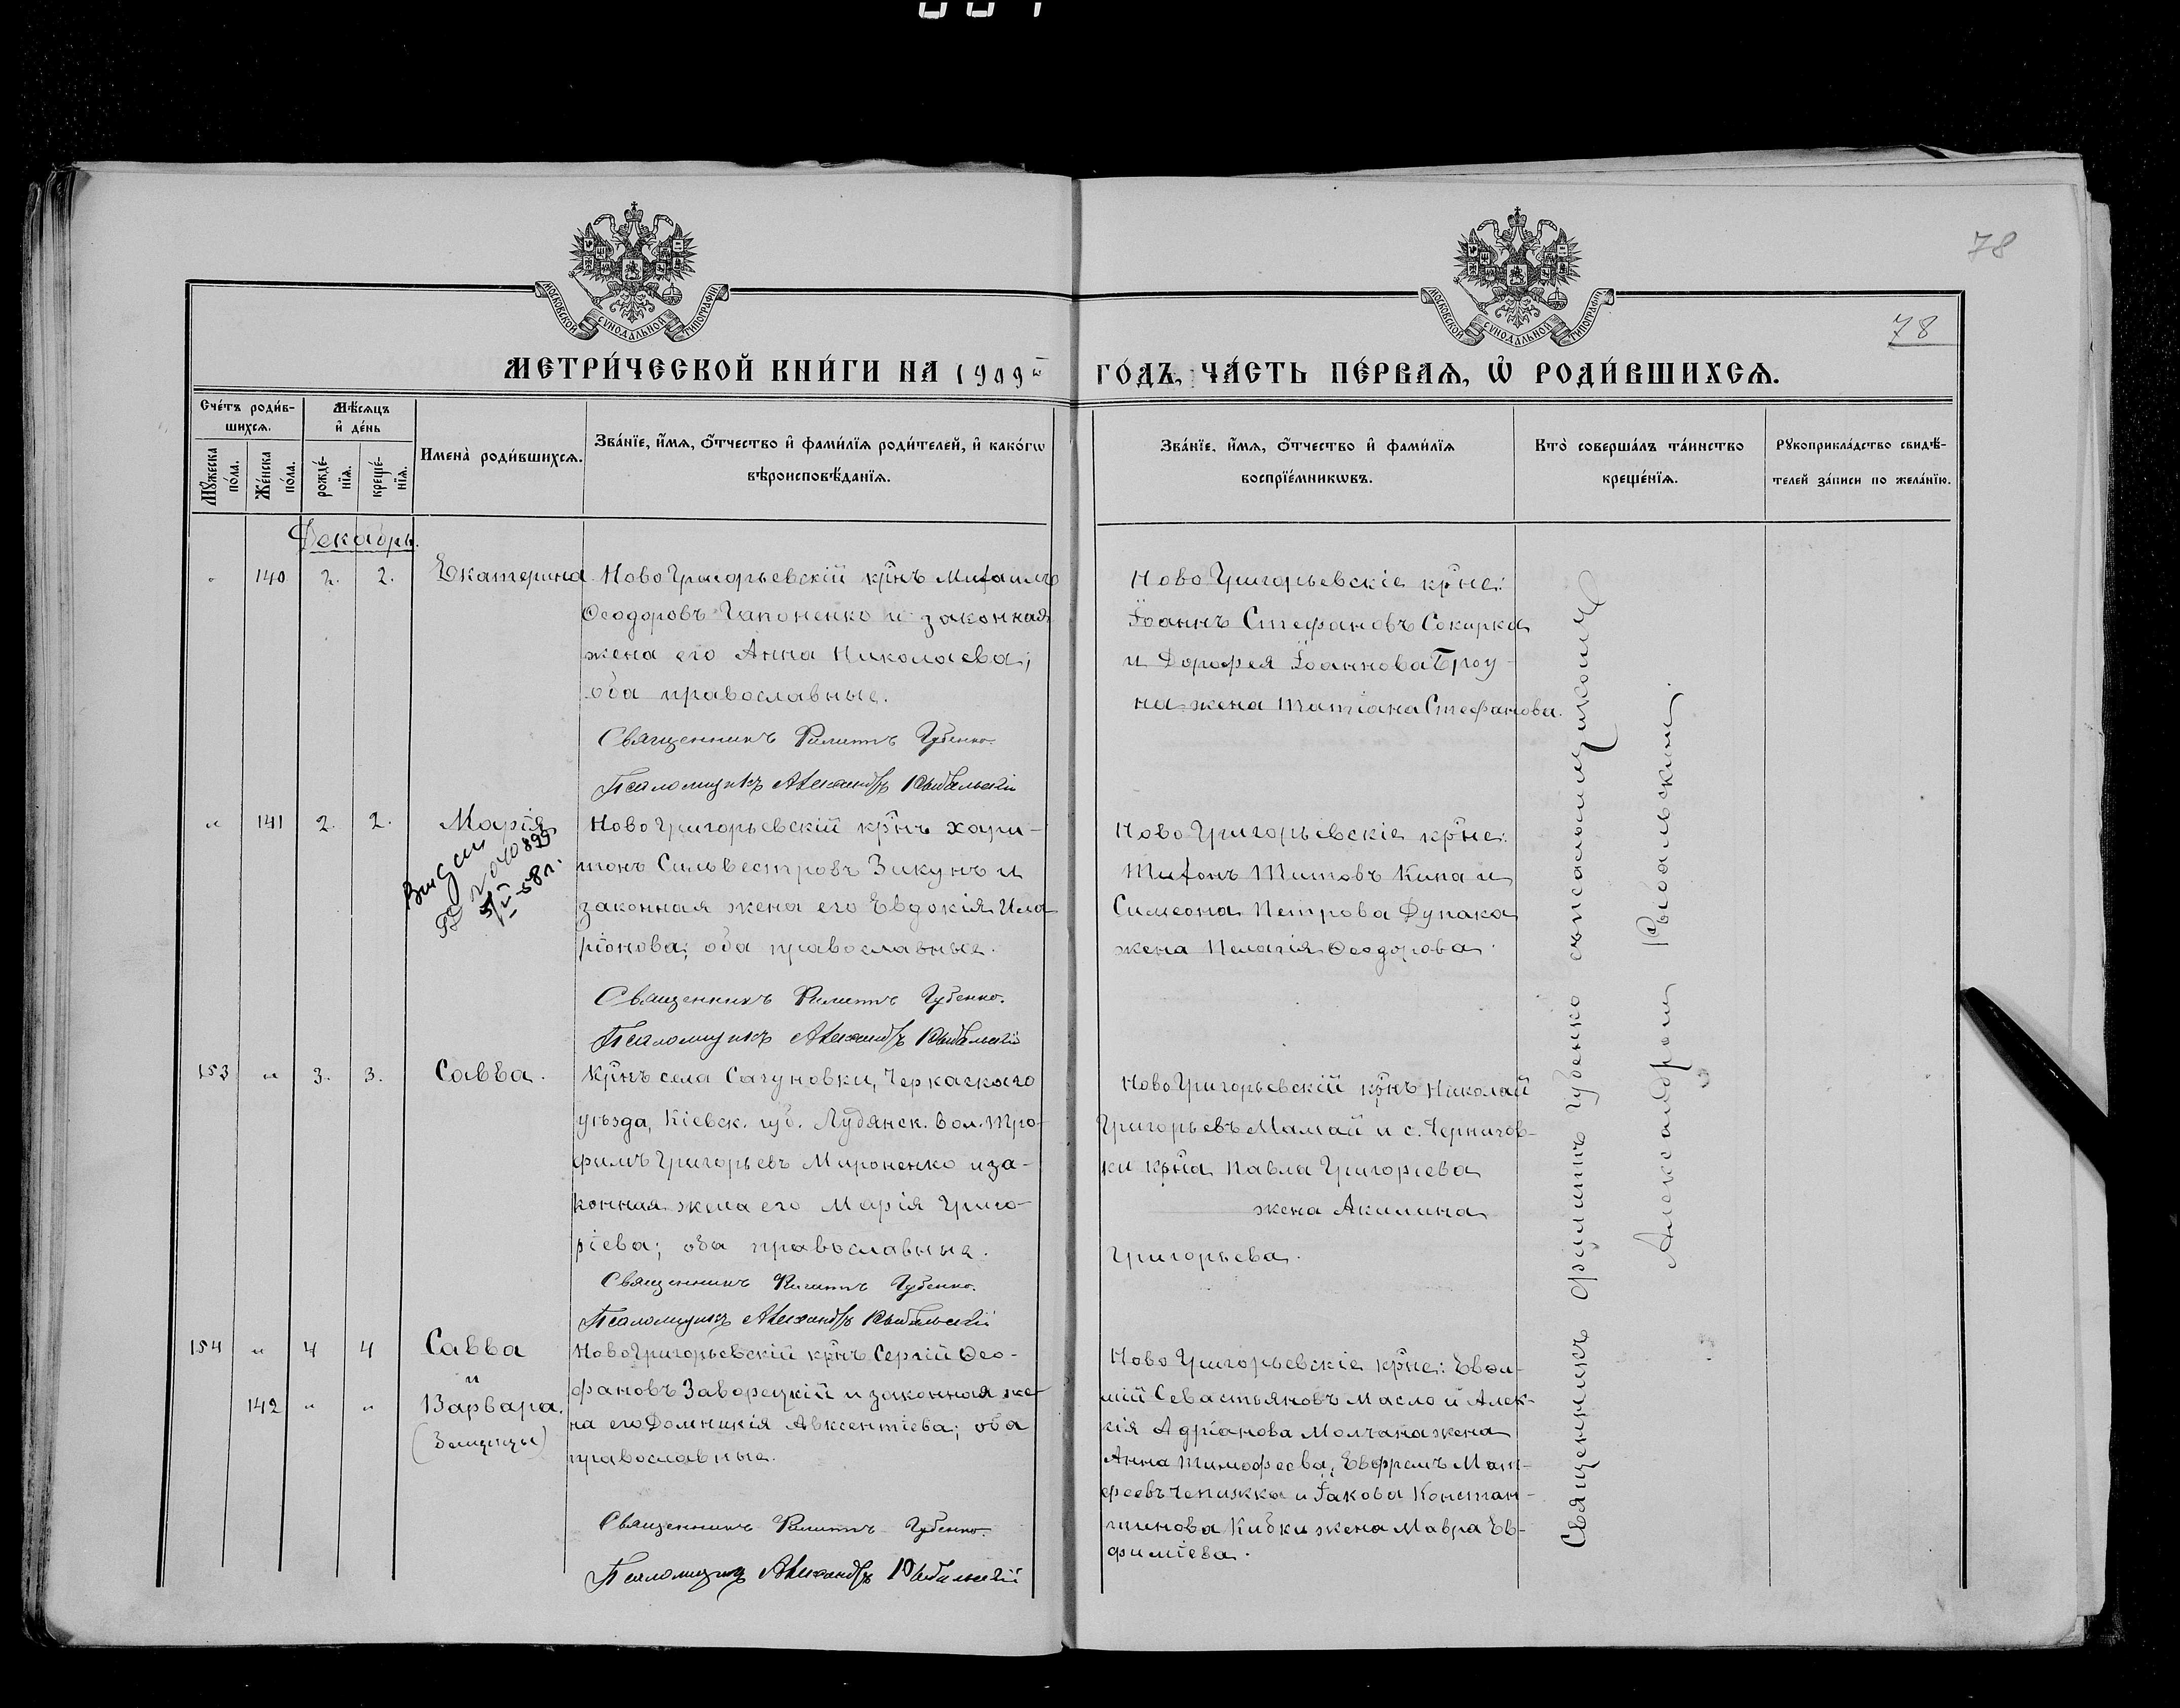 78
78
МОСКОВСКОЙ СѴНОДАЛЬНОЙ ТИПОГРАФІИ
МОСКОВСКОЙ СѴНОДАЛЬНОЙ ТИПОГРАФІИ
МЕТРИ́ЧЕСКОЙ КНИ́ГИ НА 1909й ГО́ДЪ, ЧА́СТЬ ПЕ́РВАѦ, Ѡ҆ РОДИ́ВШИХСѦ.
Сче́тъ роди́в-
шихсѧ.
Мꙋ́жеска по́ла.
Же́нска по́ла.
Мѣ́сѧцъ и҆ де́нь
рожде́-
нїѧ.
креще́-
нїѧ.
Имена̀ роди́вшихсѧ.
Зва́нїе, и҆́мѧ, ѻ҆́тчество и҆ фами́лїѧ роди́телей, и҆ како́гѡ
вѣроисповѣ́данїѧ.
Зва́нїе, и҆́мѧ, ѻ҆́тчество и҆ фами́лїѧ
воспрїе́мникѡвъ.
Кто̀ соверша́лъ та́инство
креще́нїѧ.
Рꙋкоприкла́дство свидѣ́-
телей за́писи по жела́нїю.
Декабрь.
" 140 2. 2. Екатерина
Ново Григорьевскій кр͠нъ Михаилъ
Ѳеодоровъ Гапоненко и законная
жена его Анна Николаева;
оба православные.
Священникъ Филиппъ Губенко.
Псаломщикъ Александръ Рыбальскій
Ново Григорьевскіе кр͠не:
Іоаннъ Стефановъ Сокирка
и Дорофея Іоаннова Броу-
на жена Татіана Стефанова.
" 141 2. 2. Марія
040899
58 г.
Ново Григорьевскій кр͠нъ Хари-
тонъ Сильвестровъ Зикунъ и
законная жена его Евдокія Ила
ріонова; оба православные.
Священникъ Филиппъ Губенко.
Псаломщикъ Александръ Рыбальскій
Ново Григорьевскіе кр͠не:
Тихонъ Титовъ Кипа и
Симеона Петрова Дупака
жена Пелагія Ѳеодорова.
153 " 3. 3. Савва.
Кр͠нъ села Сагуновки, Черкаскаго
уѣзда, Кіевск. губ. Лудянск. вол. Тро-
фимъ Григорьевъ Мироненко и за-
конная жена его Марія Григо-
ріева; оба православные.
Священникъ Филиппъ Губенко.
Псаломщикъ Александръ Рыбальскій
Ново Григорьевскій кр͠нъ Николай
Григорьевъ Мамай и с. Чернигов-
ки кр͠на Павла Григоріева
жена Акилина
Григорьева.
154 " 4 4 Савва
и
142 " " Варвара.
(Близнецы)
Ново Григорьевскій кр͠нъ Сергій Ѳео-
фановъ Заворецкій и законная же-
на его Домникія Авксентіева; оба
православные.
Священникъ Филиппъ Губенко.
Псаломщикъ Александръ Рыбальскій
Ново Григорьевскіе кр͠не: Евфи-
мій Севастьяновъ Масло и Алек-
сія Адріанова Молчана жена
Анна Тимофеева; Евфремъ Мат-
феевъ Чепижка и Іакова Констан-
тинова Кибки жена Мавра Ев-
фиміева.
Священникъ Филиппъ Губенко съ псаломщикомъ
Александромъ Рыбальскимъ.